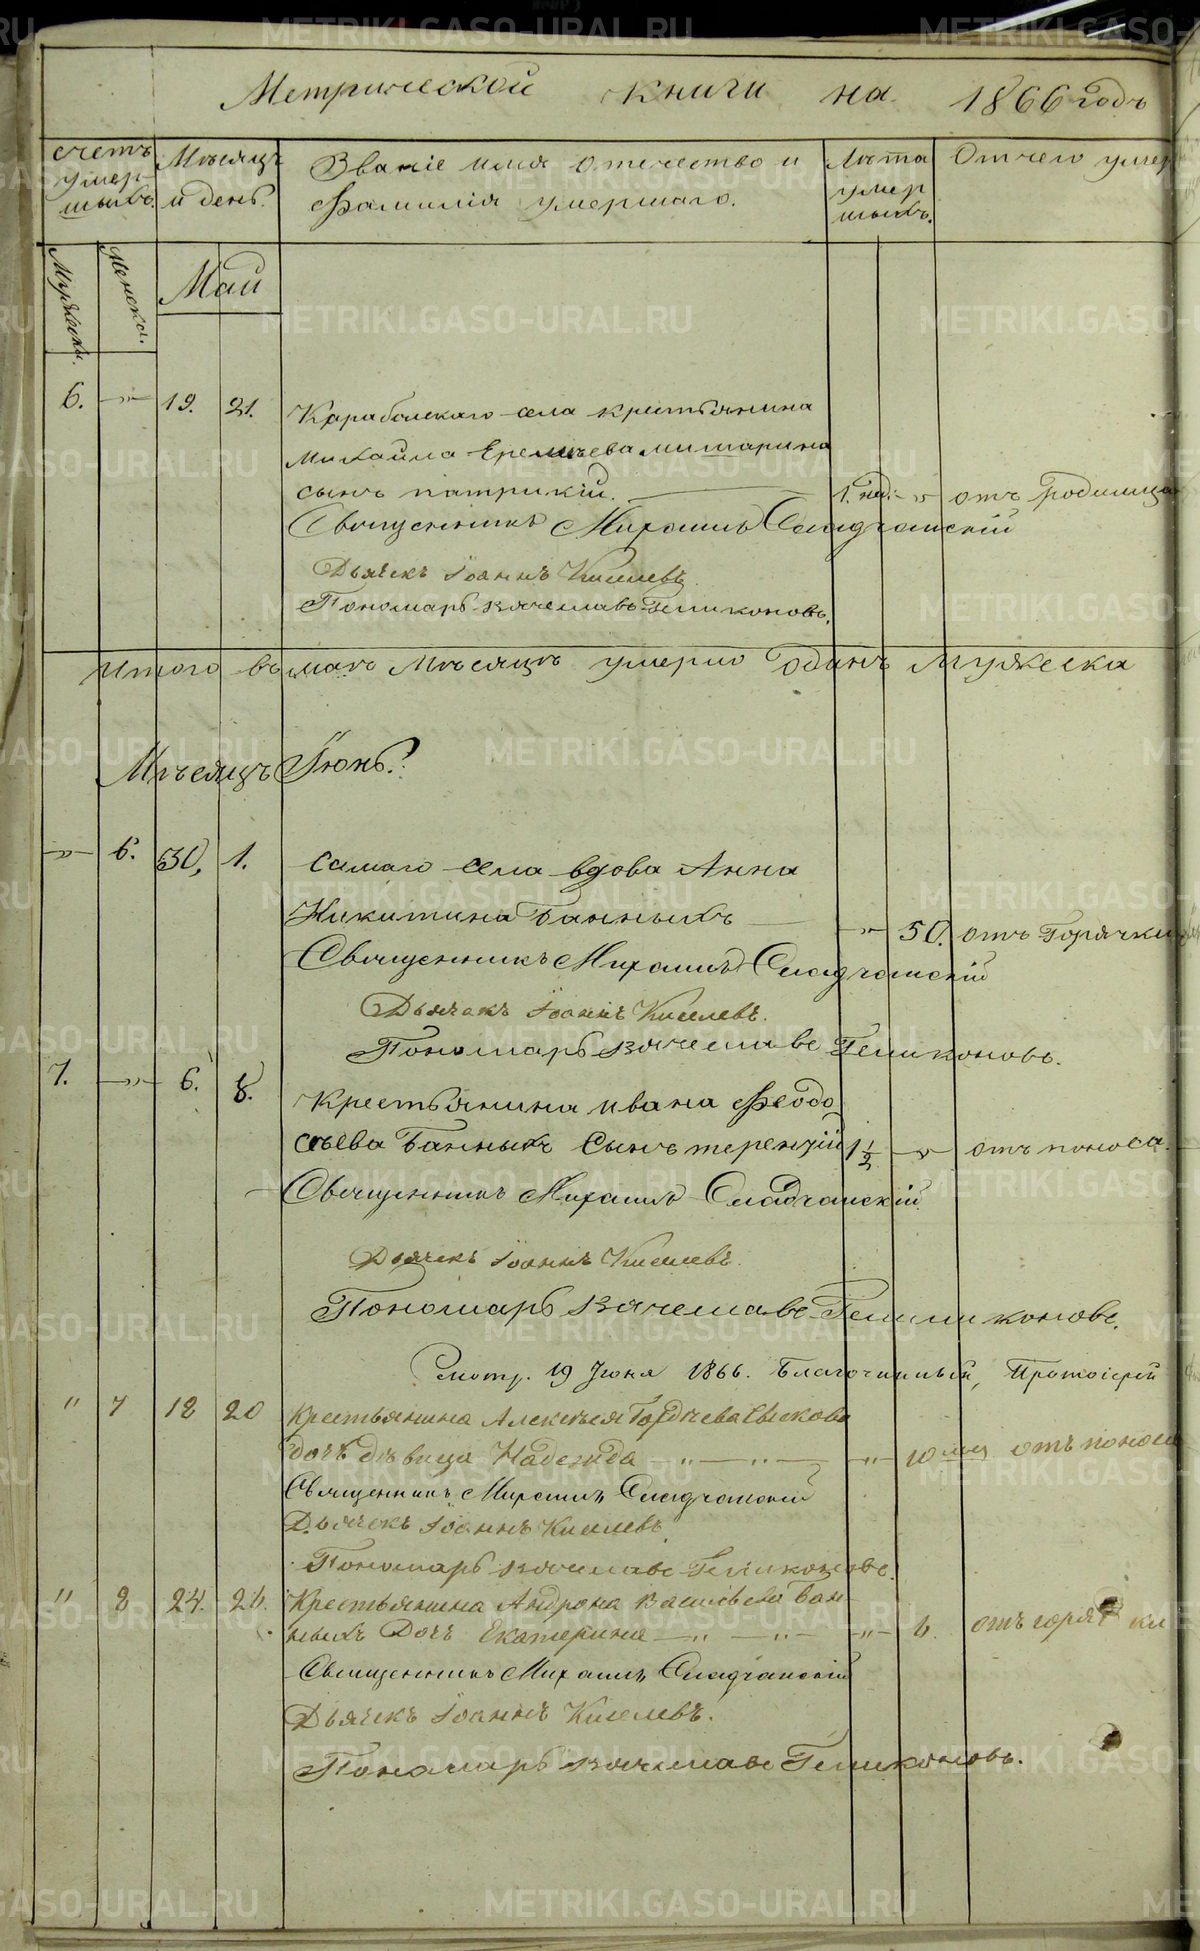 Метрической книги на 1866 годъ
счетъ умер-шихъ.
Мѣсяцъ и день.
Званіе имя отечество и
Фамилія умершаго.
Лѣта умер шихъ.
Отчего умер
Мужеска.
Женска.
Май
6. -"- 19. 21. Караболскаго села крестьянина
Михаила Еремѣева
сынъ патрикій. 1. нед: -"- отъ Родимца
Священникъ Михаилъ
Дьячекъ Іоаннъ Киселевъ
Пономарь вячеславъ
Итого въ маѣ Мѣсяцѣ умерло одинъ мужеска
Мѣсяцъ Іюнь.
-"- 6. 30, 1. Самаго села вдова Анна
Никитина Банныхъ -"- 50. отъ Горячки
Священникъ Михаилъ
Дьячекъ Іоаннъ Киселевъ.
Пономарь вячеславъ
7. -"- 6. 8. Крестьянина ивана Феодо
сьева Банныхъ Сынъ терентій 1 1/2 -"- отъ поноса.
Священникъ Михаилъ
Дьячекъ Іоаннъ Киселевъ.
Пономарь вячеславъ
Смотр. 19 Іюня 1866. Благочинный, Протоіерей
" 7 18 20 Крестьянина Алексѣя Гордѣева
дочь дѣвица Надежда -"- -"- -"- 10 отъ поноса
Священникъ Михаилъ
Дьячекъ Іоаннъ Киселевъ
Пономарь вячеславъ
" 8 24. 26. Крестьянина Андрона Васильева Бан-
ныхъ Дочь Екатерина -"- -"- -"- 6. отъ горячки
Священникъ Михаилъ
Дьячекъ Іоаннъ Киселевъ.
Пономарь вячеславъ
METRIKI.GASO-URAL.RU